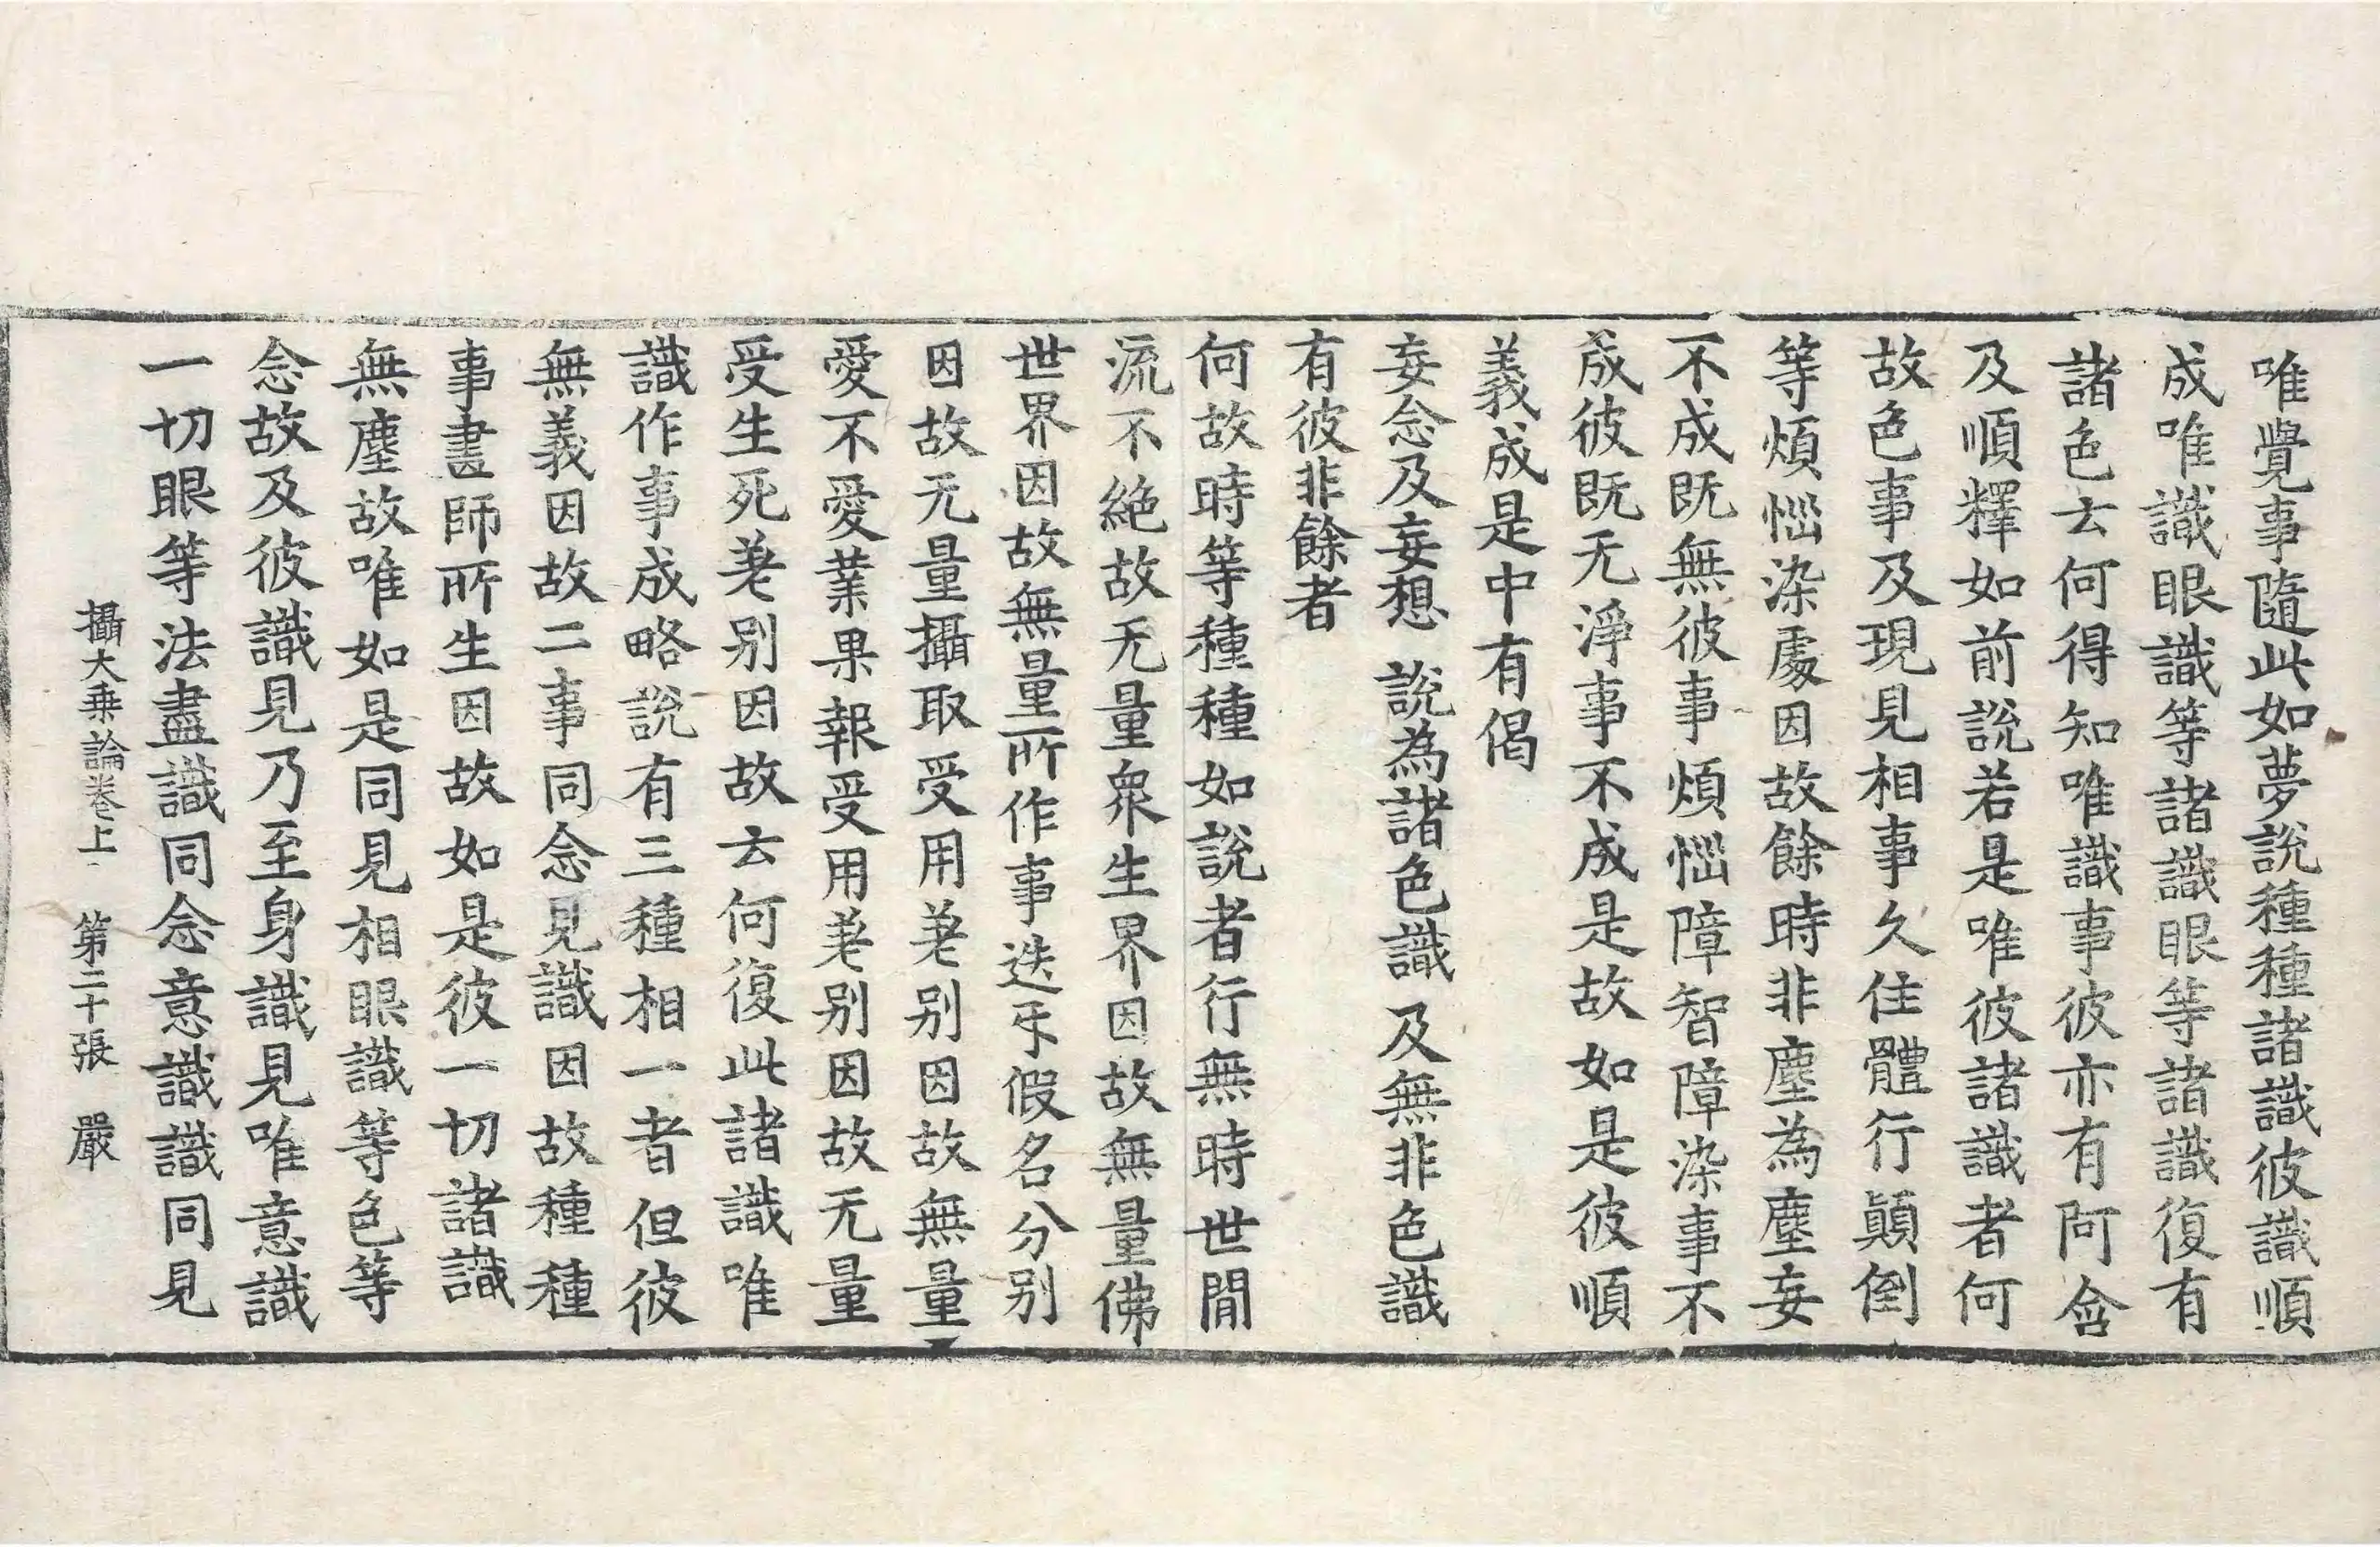 唯覺事隨此如夢說種種諸識彼識順
成唯識眼識等諸識眼等諸識復有
諸色云何得知唯識事彼亦有阿含
及順釋如前說若是唯彼諸識者何
故色事及現見相事久住體行顛倒
等煩惱染處因故餘時非塵為塵妄
不成既無彼事煩惱障智障染事不
成彼既无淨事不成是故如是彼順
義成是中有偈
妄念及妄想　說為諸色識　及無非色識
有彼非餘者
何故時等種種如說者行無時世間
流不絕故无量眾生界因故無量佛
世界因故無量所作事迭互假名分別
因故无量攝取受用差别因故無量
愛不愛業果報受用差别因故无量
受生死差别因故云何復此諸識唯
識作事成略說有三種相一者但彼
無義因故二事同念見識因故種種
事畫師所生因故如是彼一切諸識
無塵故唯如是同見相眼識等色等
念故及彼識見乃至身識見唯意識
一切眼等法盡識同念意識識同見
攝大乘論卷上　第二十張　嚴